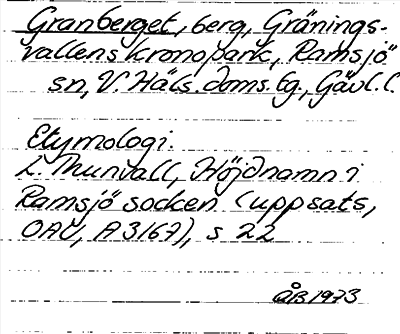 Granberget, berg, Gränings-
vallens kronopark, Ramsjö
sn, V. Häls. doms. tg., Gävl. l.
Etymologi.
L. Thunvall, Höjdnamn i
Ramsjö socken (uppsats,
OAU, A3167), s 22
ÅB 1973